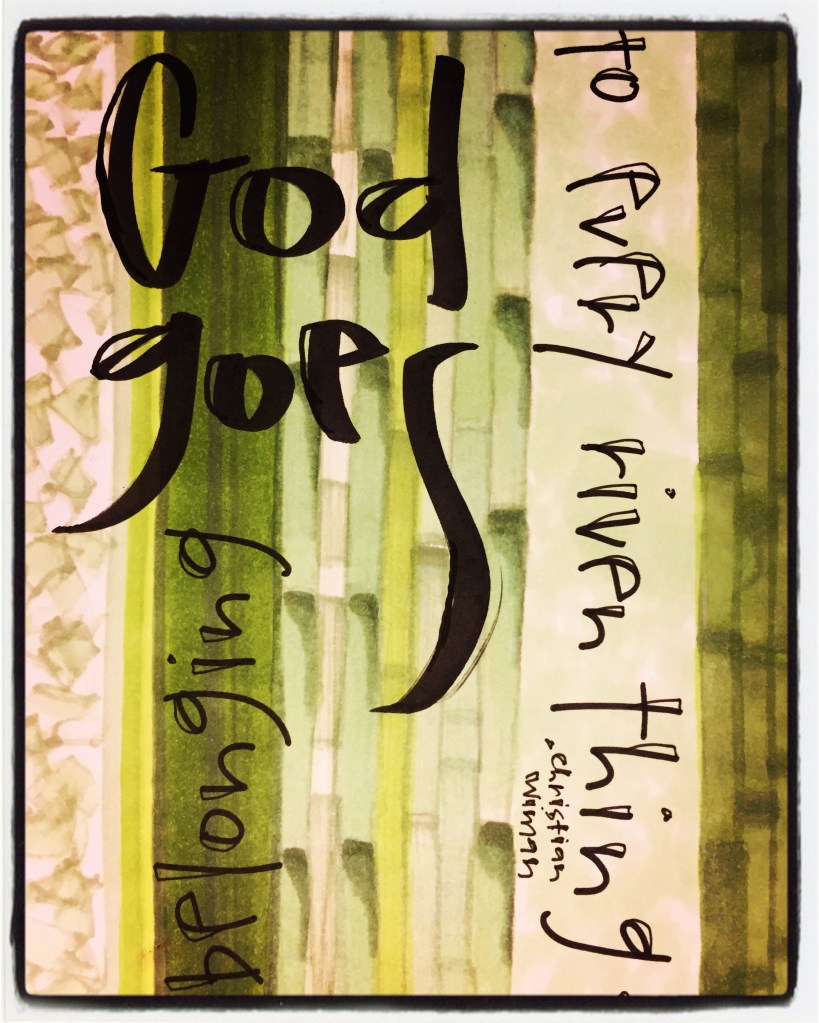 God
goes
belonging
to every riven thing.
- Christian
Wiman